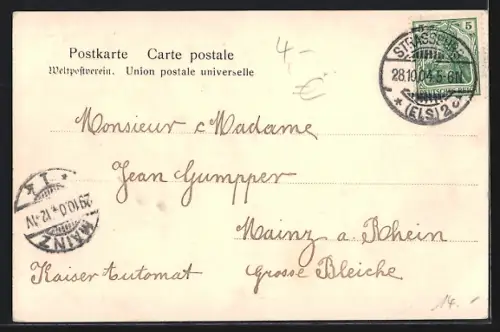 Postkarte Carte postale
Weltpostverein. Union postale universelle
4,-
€
5
STRASSBURG
28.10.04.5-6N.
* (ELS) 2 c
Monsieur & Madame
Jean Gumpper
Mainz a. Rhein
Kaiser Automat Grosse Bleiche
MAINZ
* 1 *
14.-